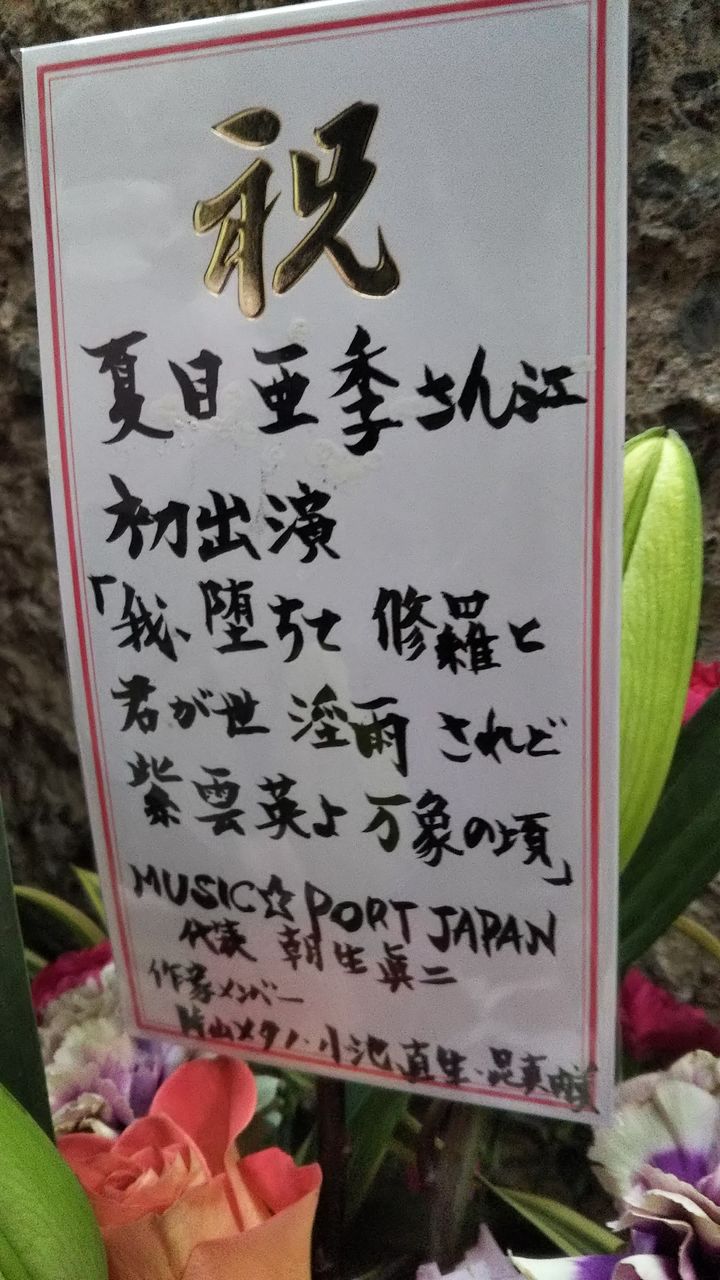 祝
夏目亜季さん江
初出演
「我、堕ちて 修羅と
君が世 淫雨 されど
紫雲英よ 万象の頃」
MUSIC☆PORT JAPAN
代表 朝生眞二
作家メンバー
片山メタノ・小池直生・昆真由美